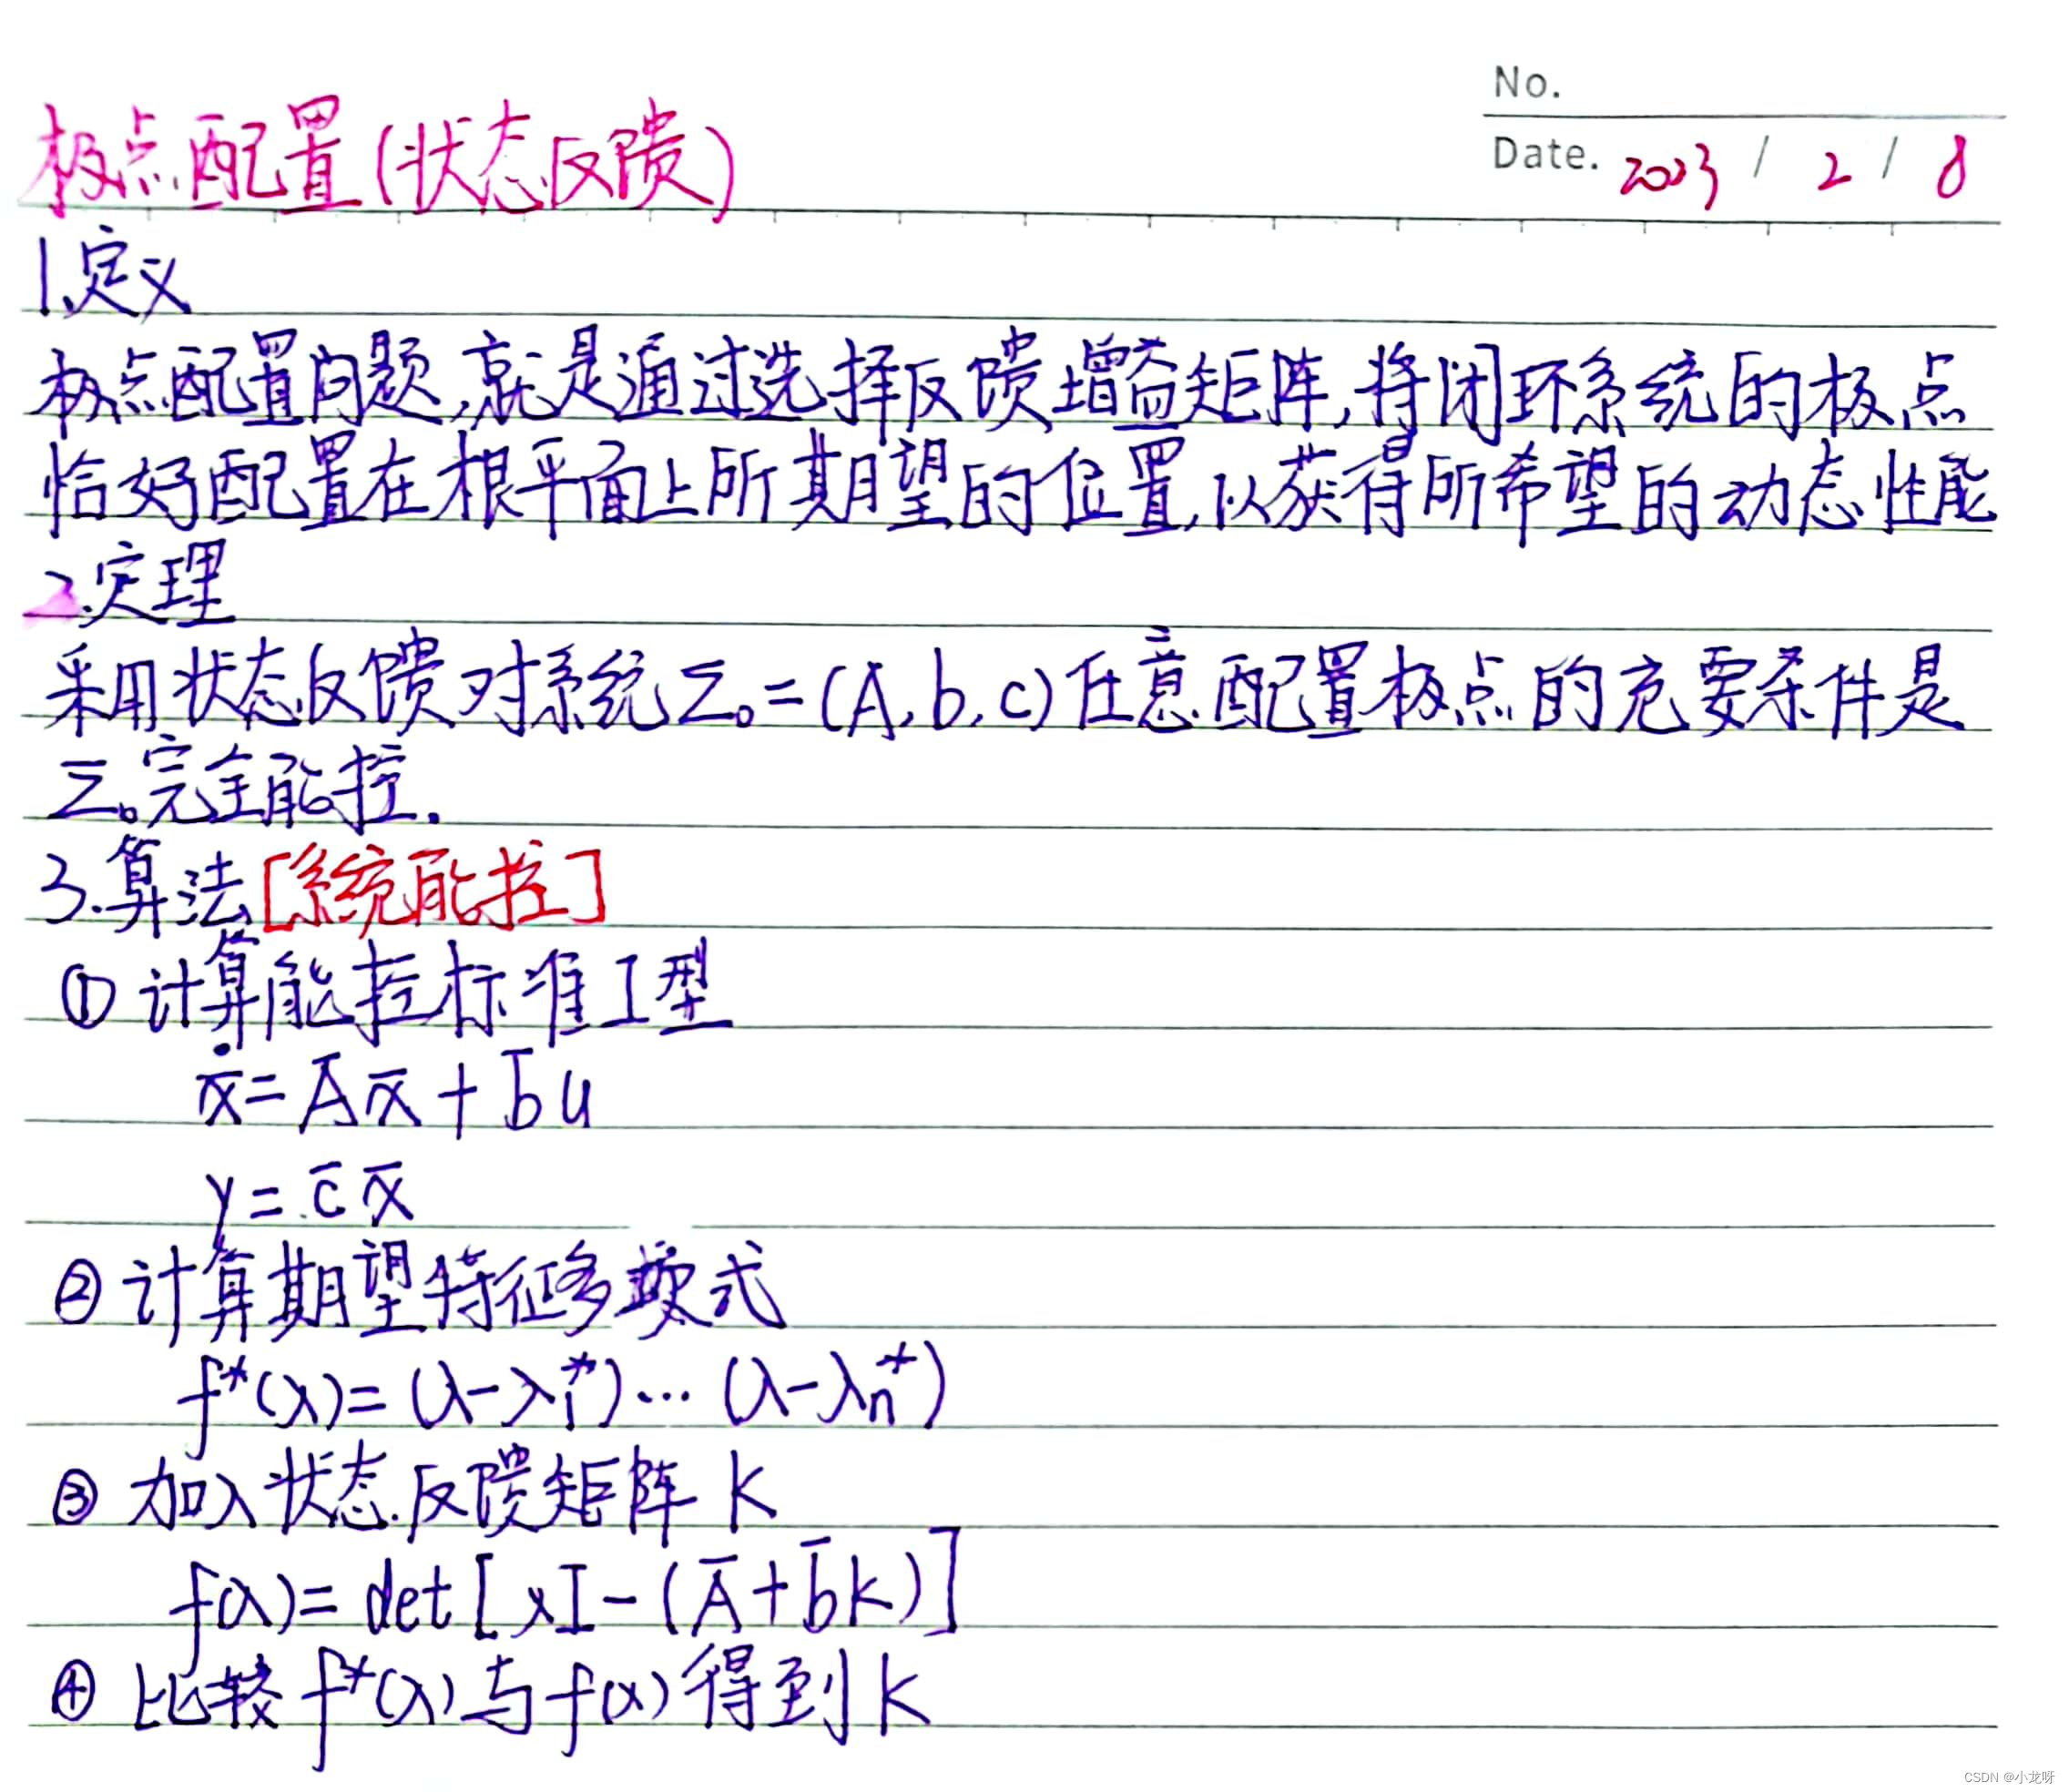 No.
Date. 2023 / 2 / 8
极点配置(状态反馈)
1.定义
极点配置问题,就是通过选择反馈增益矩阵,将闭环系统的极点
恰好配置在根平面上所期望的位置,以获得所希望的动态性能
2.定理
采用状态反馈对系统Σ₀=(A,b,c)任意配置极点的充要条件是
Σ₀完全能控.
3.算法[系统能控]
① 计算能控标准I型
ẋ̄=Āx̄+b̄u
y=c̄x̄
② 计算期望特征多项式
f*(λ)=(λ-λ₁*)…(λ-λₙ*)
③ 加入状态反馈矩阵K
f(λ)=det[λI-(Ā+b̄K)]
④ 比较f*(λ)与f(λ)得到K
CSDN @小龙呀